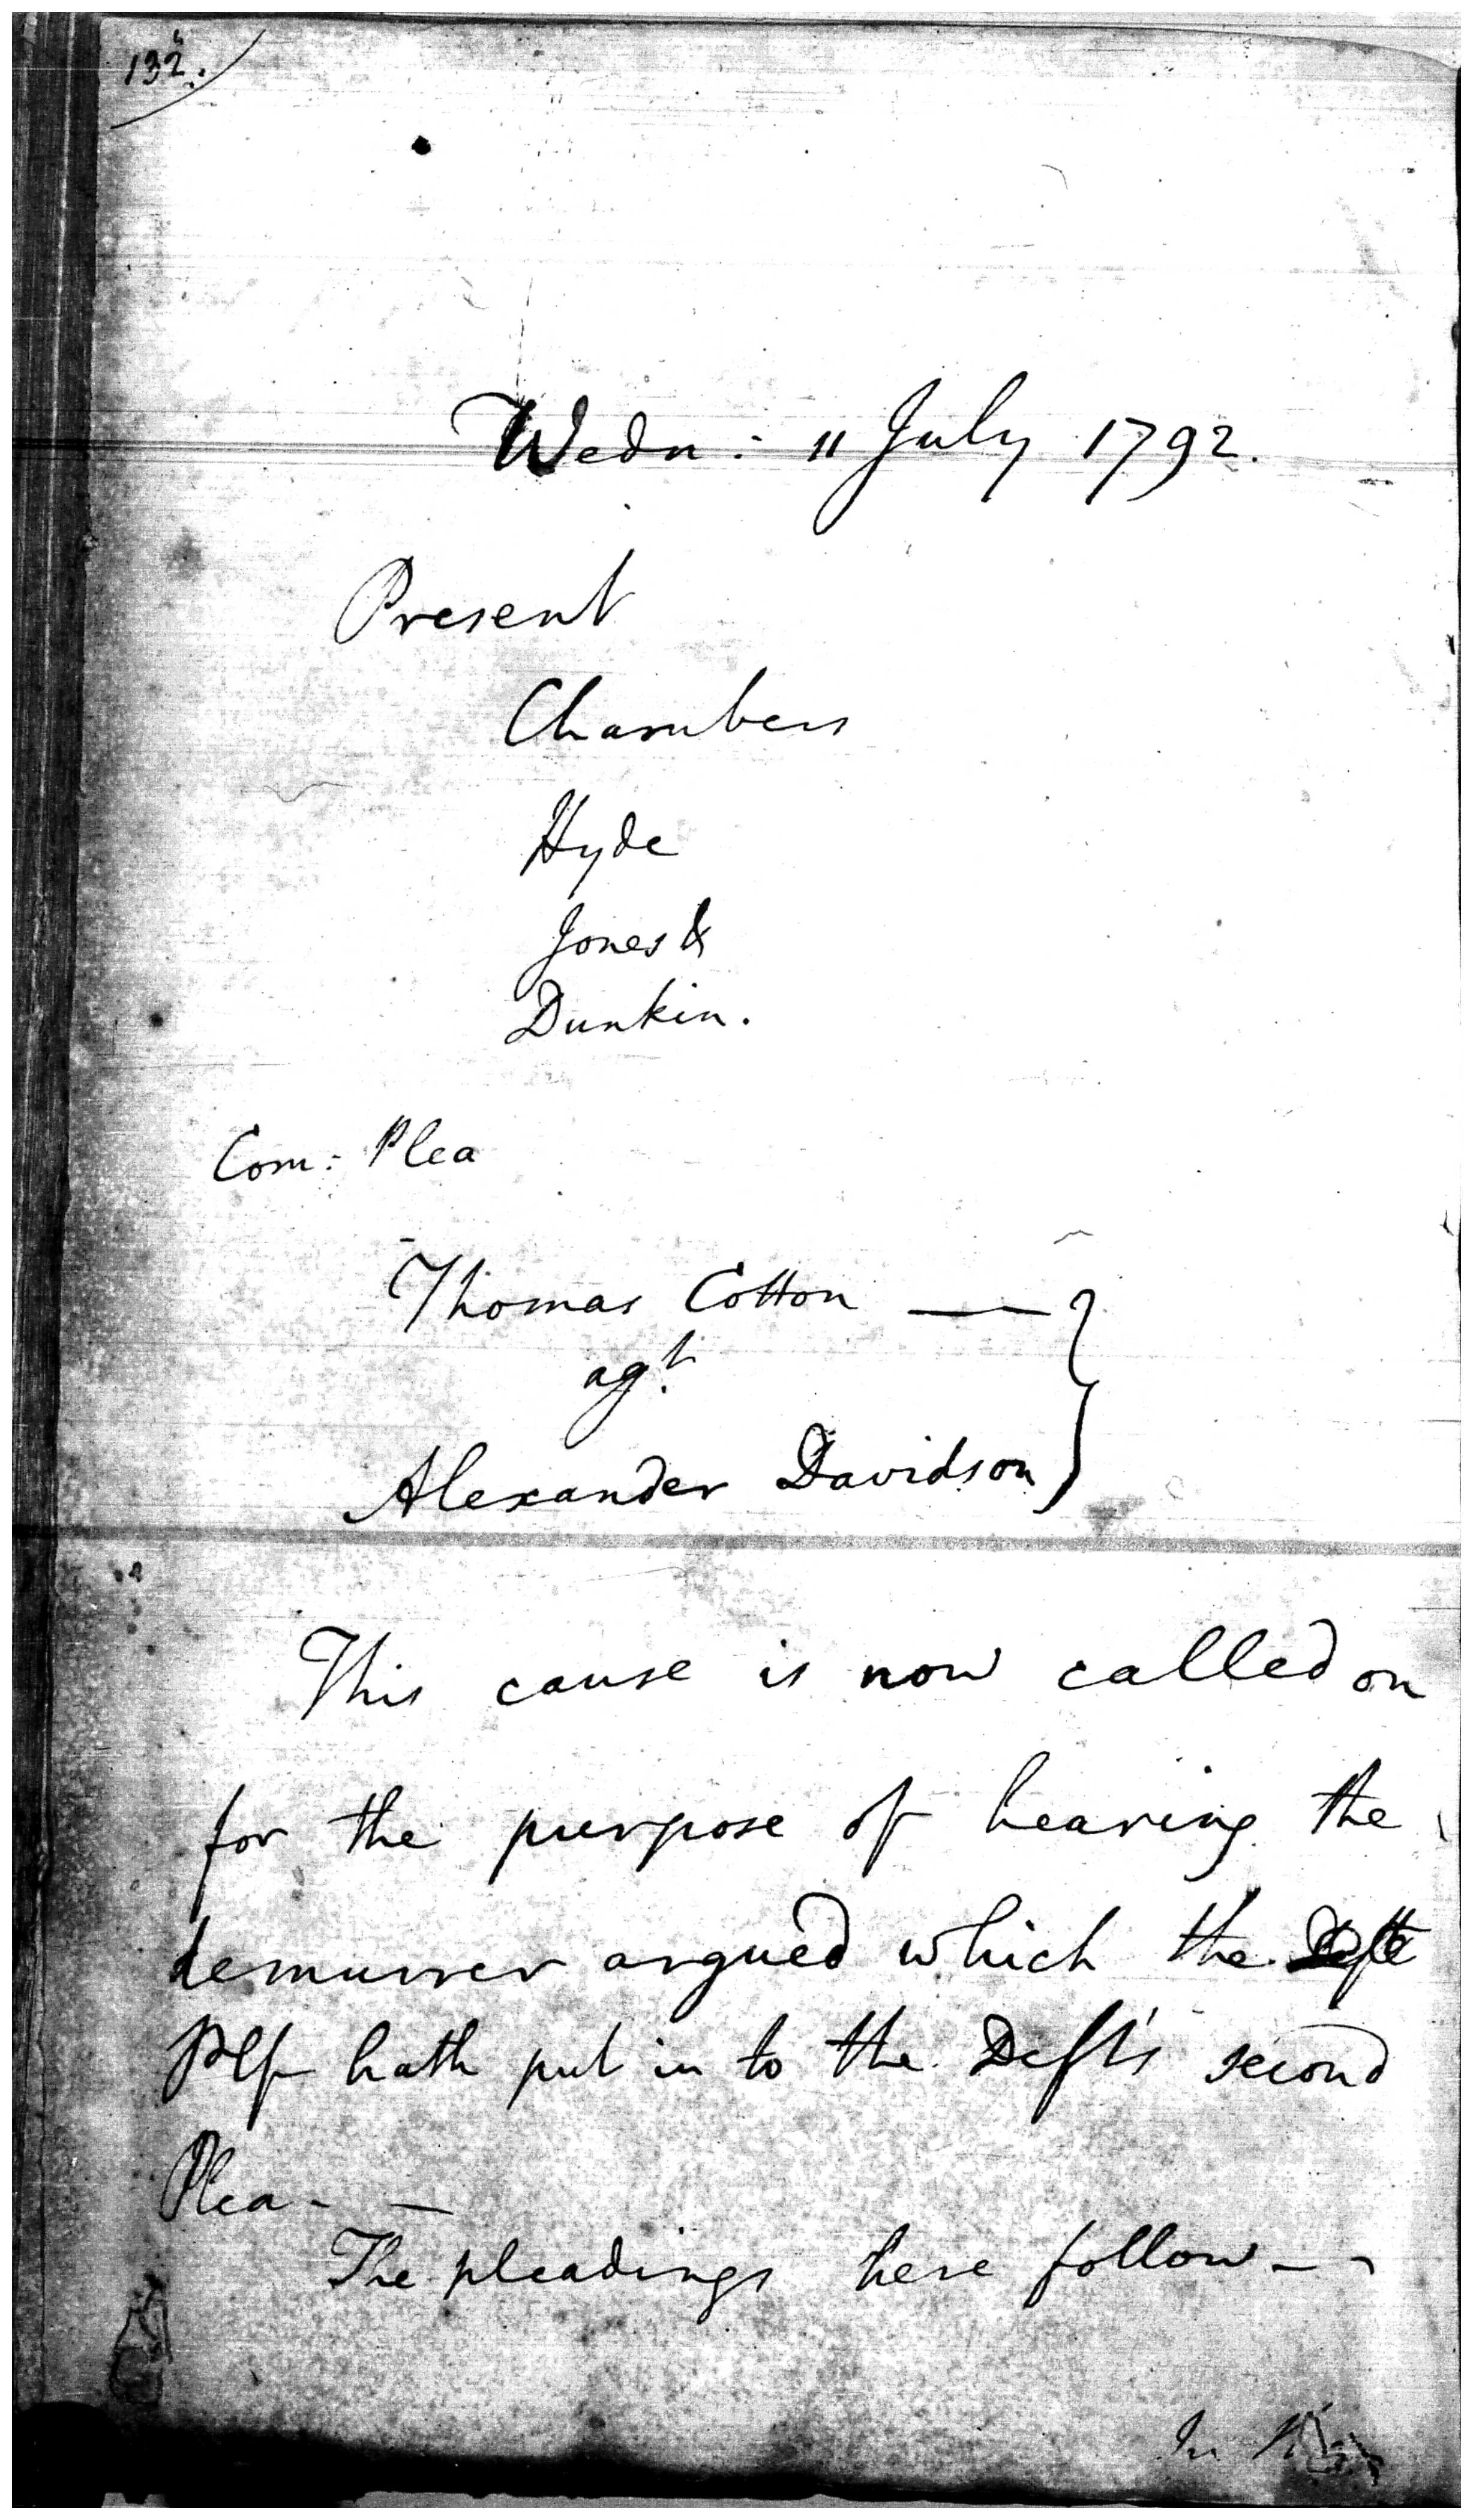 132.
Wedn: 11 July 1792.
Present
Chambers
Hyde
Jones &
Dunkin.
Com: Plea
Thomas Cotton —
agt.
Alexander Davidson
This cause is now called on
for the purpose of hearing the
demurrer argued which the
Plf hath put in to the Deft's second
Plea. —
The pleadings here follow —
In